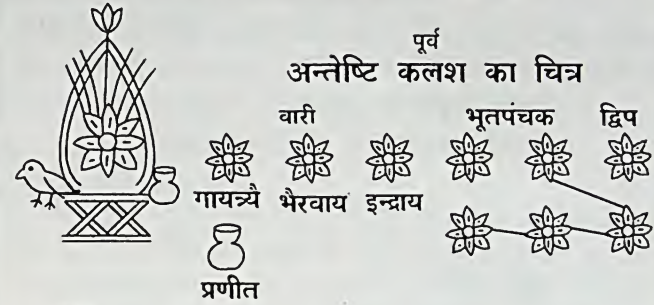 पूर्व
अन्तेष्टि कलश का चित्र
वारी भूतपंचक द्विप
गायत्र्यै भैरवाय इन्द्राय
प्रणीत